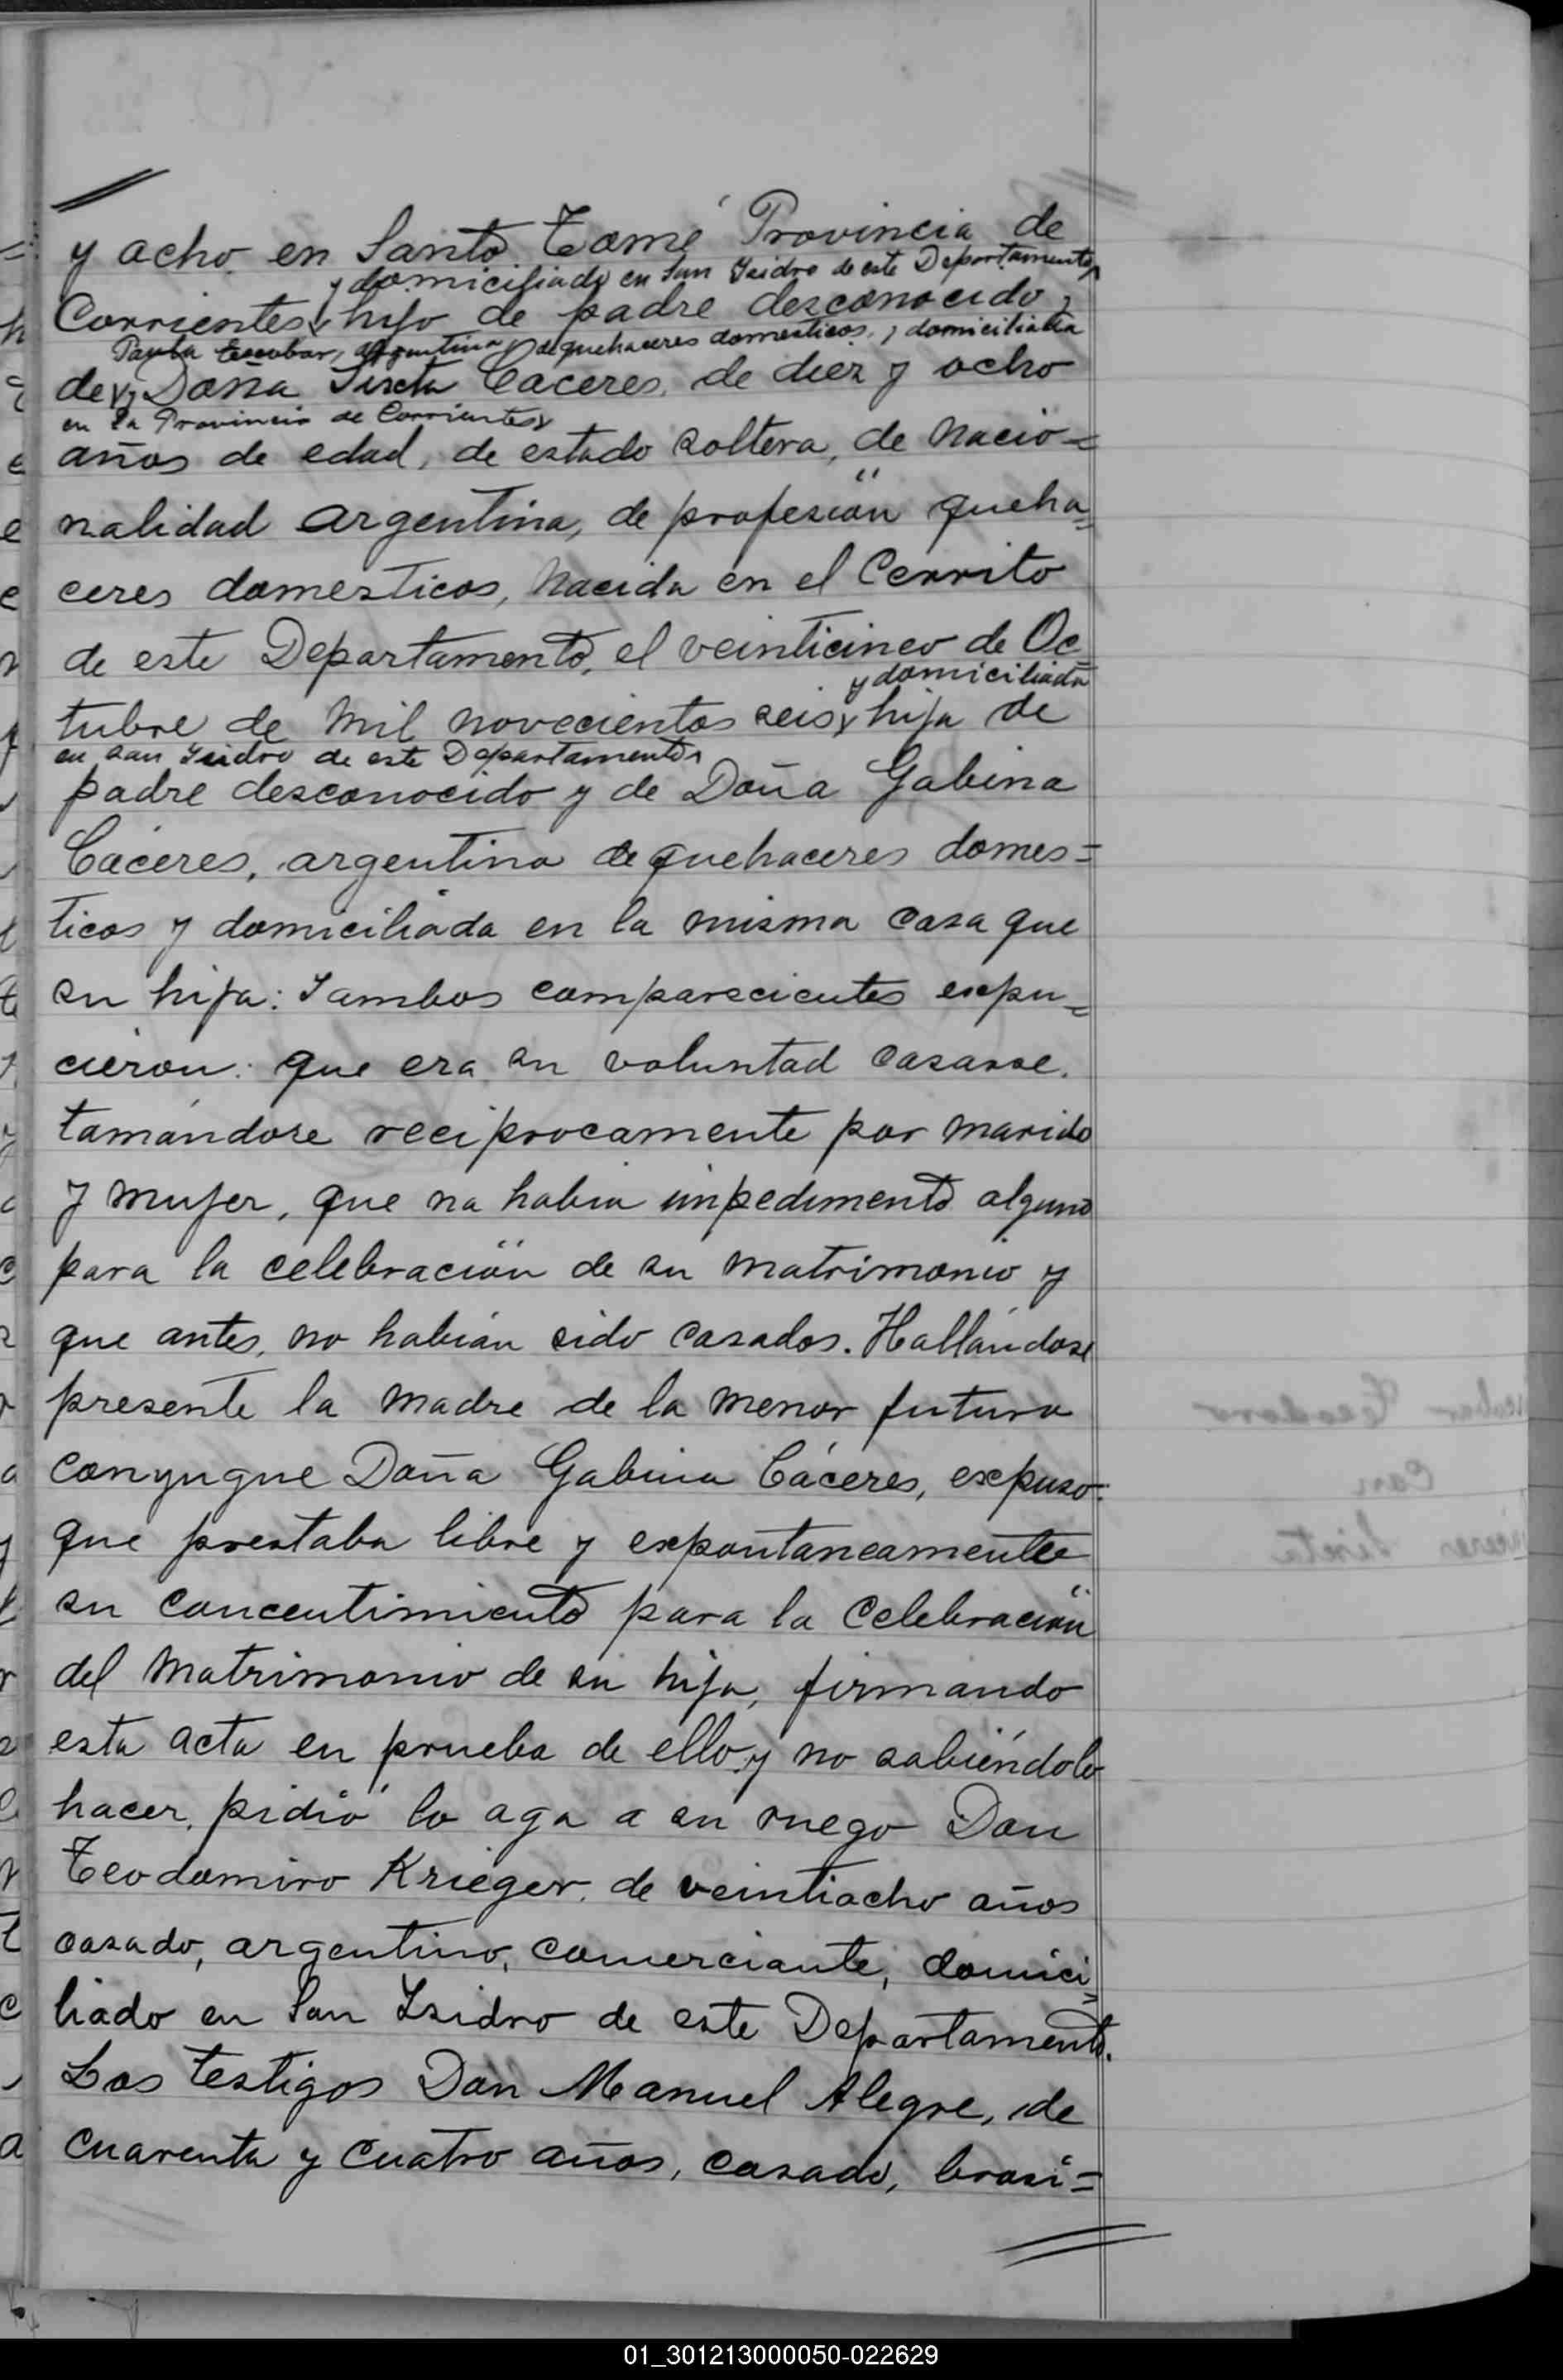 y ocho en Santo Tomé Provincia de
y domiciliado en San Isidro de este Departamento
Corrientes hijo de padre desconocido y
Paula Escobar, argentina, de quehaceres domesticos, y domiciliada
de y Doña Sixta Caceres, de diez y ocho
en la Provincia de Corrientes
años de edad, de estado soltera, de nacio=
nalidad argentina, de profesión queha=
ceres domesticos, nacida en el Cerrito
de este Departamento, el veinticinco de Oc
y domiciliada
tubre de mil novecientos seis hija de
en San Isidro de este Departamento
padre desconocido y de Doña Gabina
Cáceres, argentina de quehaceres domes=
ticos y domiciliada en la misma casa que
su hija: I ambos comparecientes expu=
cieron: que era su voluntad casarse,
tomándose reciprocamente por marido
y mujer, que no habia impedimento alguno
para la celebración de su matrimonio y
que antes, no habían sido casados. Hallándose
presente la madre de la menor futura
conyugue Doña Gabina Cáceres, expuso:
que prestaba libre y expontaneamente
su concentimiento para la celebración
del matrimonio de su hija, firmando
esta acta en prueba de ello y no sabiéndolo
hacer, pidió lo aga a su ruego Don
Teodomiro Krieger, de veintiocho años
casado, argentino, comerciante, domici=
liado en San Isidro de este Departamento.
Los testigos Don Manuel Alegre, de
cuarenta y cuatro años, casado, brasi=
01_301213000050-022629